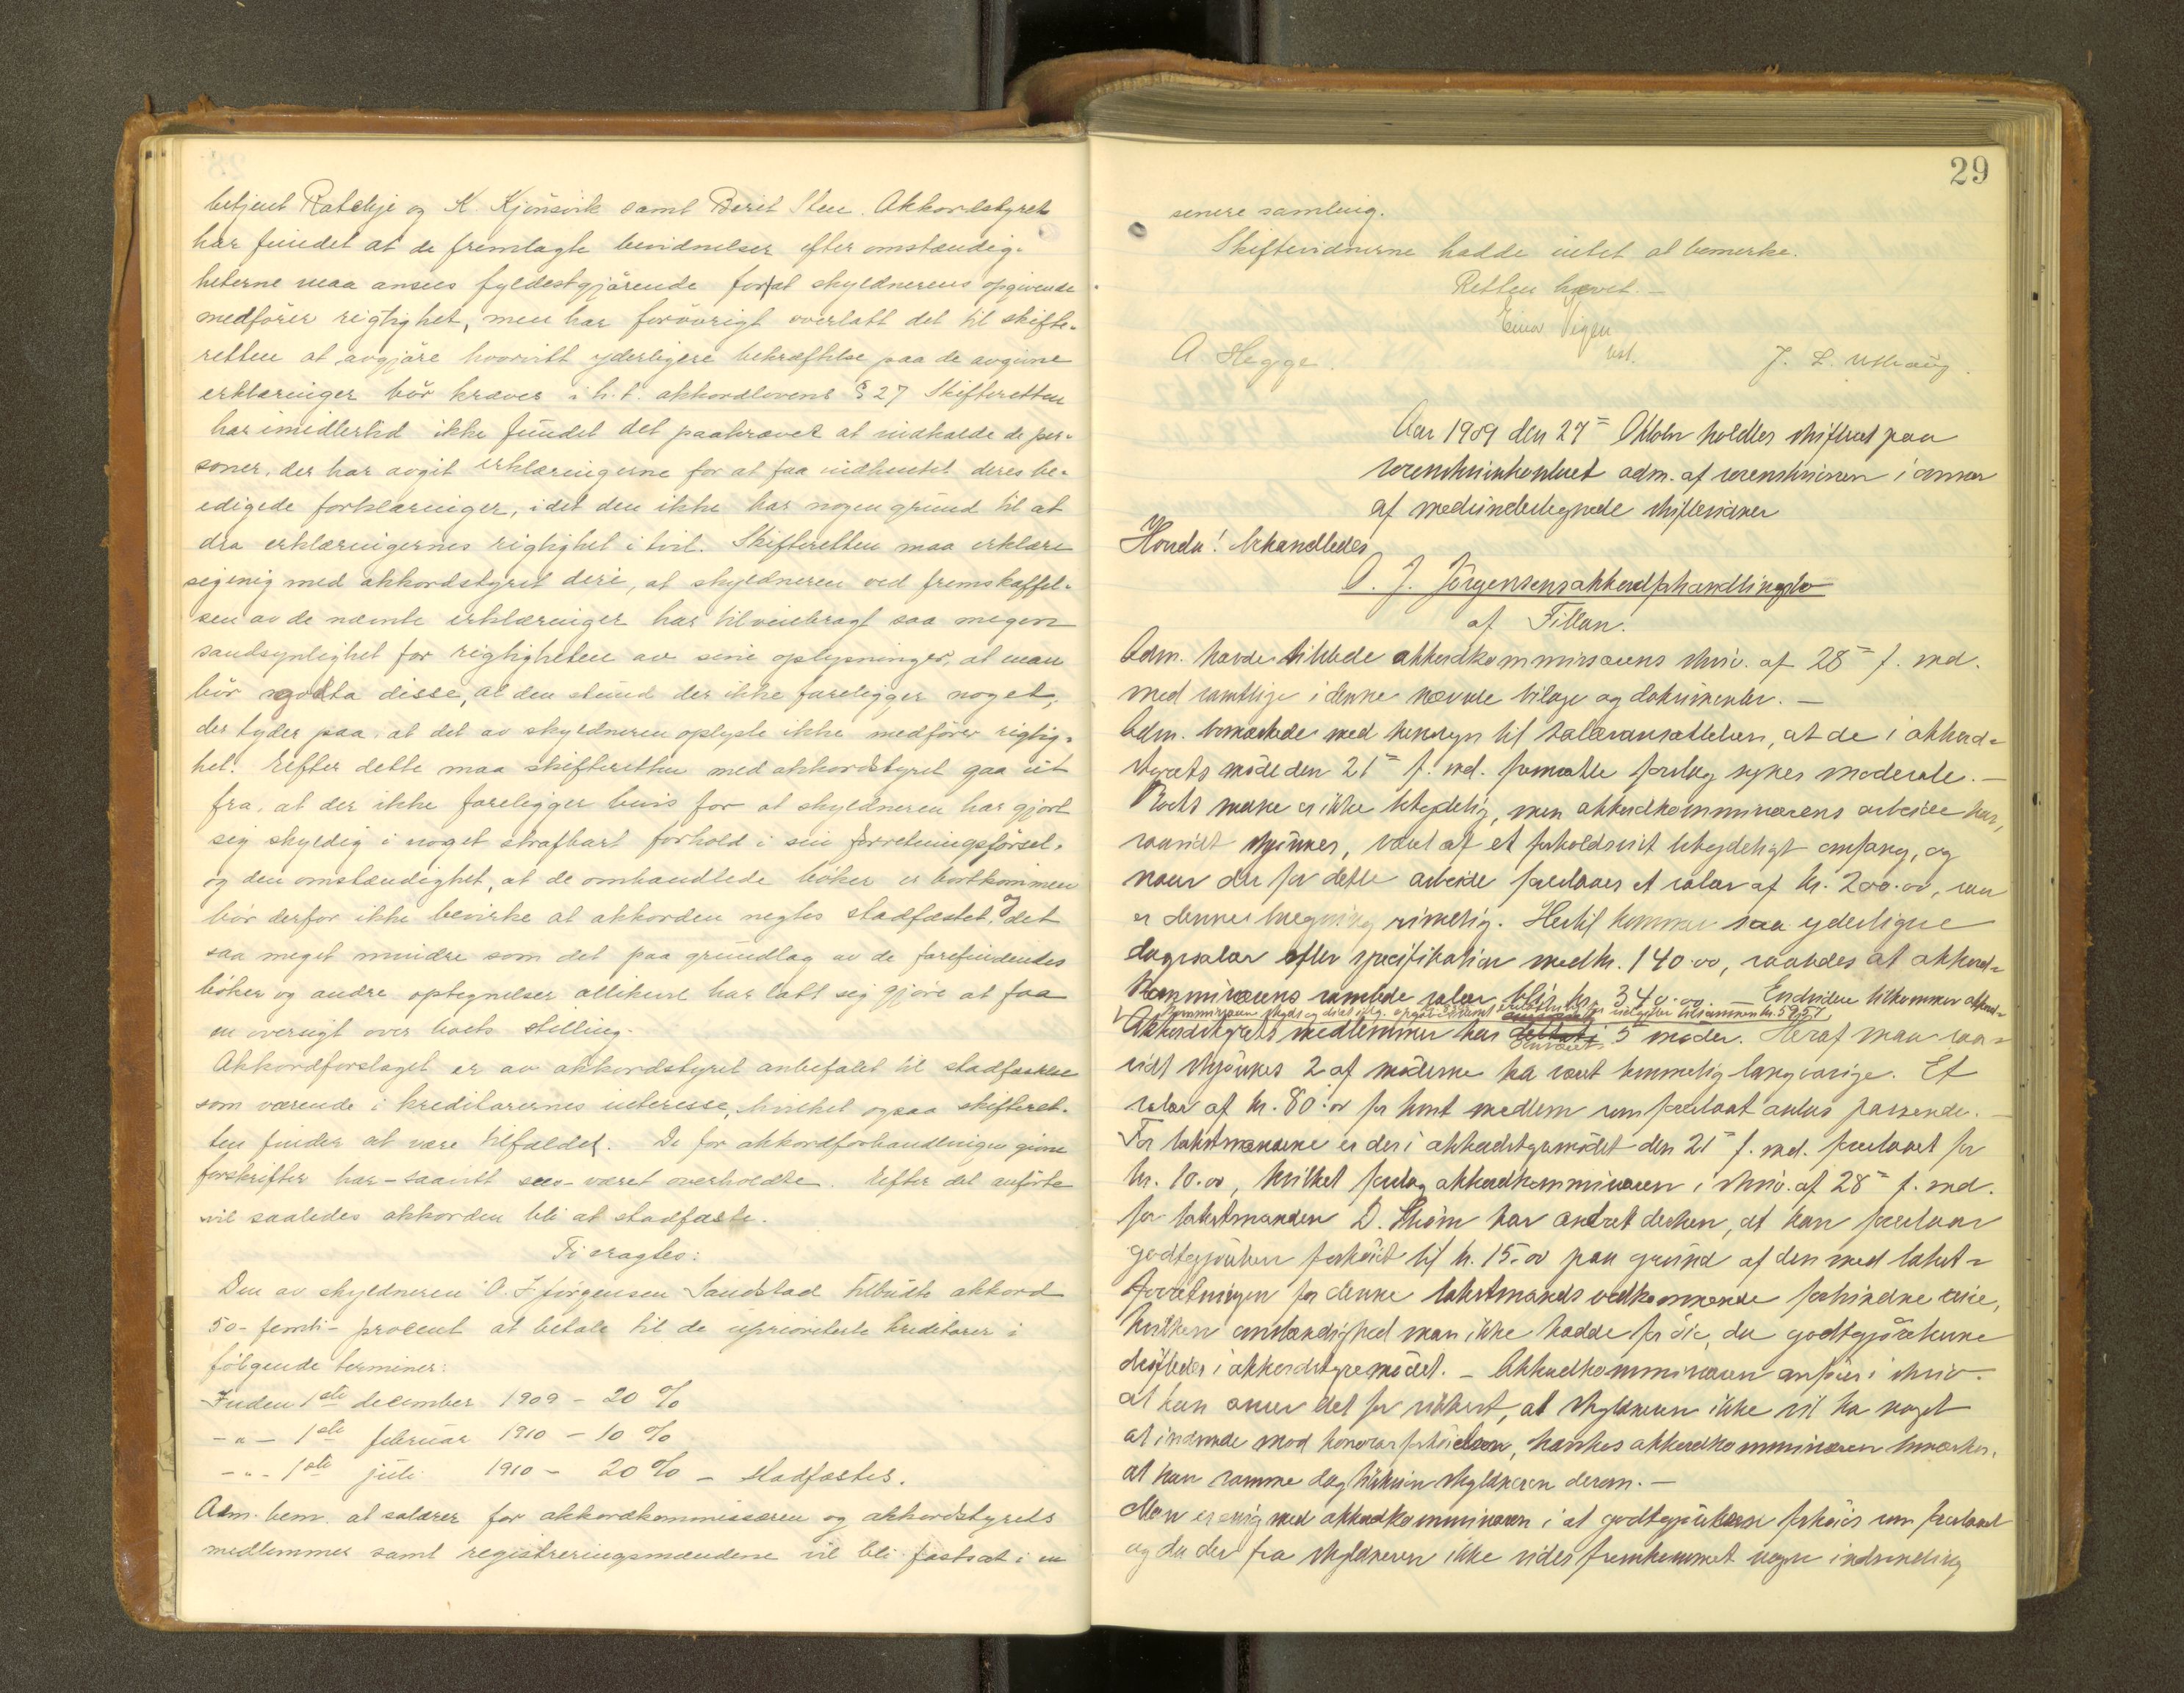 betjent Ratchje og K. Kjönsvik samt Berit Sten. Akkordstyret
har fundet at de fremlagte bevidnelser efter omstændig-
heterne maa ansees fyldestgjörende for at skyldnerens opgivende
medförer rigtighet, men har forövrigt overlatt det til skifte-
retten at avgjöre hvorvitt yderligere bekræftelse paa de avgivne
erklæringer bör kræves i h. t. akkordlovens § 27 Skifteretten
har imidlertid ikke fundet det paakrævet at indkalde de per-
soner, der har avgit erklæringerne for at faa indhentet deres be-
edigede forklaringer, idet den ikke har nogen grund til at
dra erklæringernes rigtighet i tvil. Skifteretten maa erklære
sig enig med akkordstyret deri, at skyldneren ved fremskaffel-
sen av de nævnte erklæringer har tilveiebragt saa megen
sandsynlighet for rigtigheten av sine oplysninger, at man
bör godta disse, al den stund der ikke foreligger noget,
der tyder paa at det av skyldneren oplyste ikke medförer rigtig-
het. Efter dette maa skifteretten med akkordstyret gaa ut
fra, at der ikke foreligger bevis for at skyldneren har gjort
sig skyldig i noget strafbart forhold i sin forretningsförsel,
og den omstændighet, at de omhandlede böker er bortkommen
bör derfor ikke bevirke at akkorden negtes stadfæstet, og det
saa meget mindre som det paa grundlag av de forefindendes
böker og andre optegnelser allikevel har latt sig gjöre at faa
en oversigt over boets stilling.
Akkordforslaget er av akkordstyret anbefalet til stadfæstelse
som værende i kreditorernes interesse, hvilket ogsaa skifteret-
ten finder at være tilfældet. De for akkordforhandlingen givne
forskrifter har - saavitt sees - været overholdte. Efter det anförte
vil saaledes akkorden bli at stadfæste.
Ti eragtes:
Den av skyldneren O. J. Jörgensen Sandstad tilbudte akkord
50 - femti - procent at betale til de uprioriterte kreditorer i
fölgende terminer:
Inden 1ste december 1909 - 20 %
- " - 1ste februar 1910 - 10 %
- " - 1ste juli 1910 - 20 % - stadfæstes.
Adm. bem. at salærer for akkordkommissæren og akkordstyrets
medlemmer samt registreringsmændene vil bli fastsat i en
29
senere samling.
Skiftevidnerne hadde intet at bemerke.
Retten hævet. -
Einar Vigen
A Hegge.
J. L. Uthaug.
Aar 1909 den 27 Oktober holdtes skifteret paa
sorenskriverkontoret adm. af sorenskriveren i overvær
af medundertegnede skiftevidner
Hvorda! behandledes
O. J. Jörgensens akkordforhandlingsbo
af Fillan.
Adm. havde tilstede akkordkommissærens skriv. af 28 f. md.
med samtlige i denne nævnte bilage og dokumenter. -
Adm. bemærkede med hensyn til salæransættelsen, at de i akkord-
styrets möde den 21 f. md. fremsatte forslag synes moderate. -
Boets masse er ikke betydelig, men akkordkommissærens arbeide har,
saavidt skjönnes, været af et forholdsvist betydeligt omfang, og
naar der for dette arbeide foreslaaes et salær af kr. 200.00, saa
er denne beregning rimelig. Hertil kommer saa yderligere
dagsalær efter specifikation med kr. 140.00, saaledes at akkord-
kommissærens samlede salær blir kr. 340.00. - Endvidere tilkommer akkord-
kommissæren skyds og diæt utgifter tilsammen kr. 59.57.
Akkordstyrets medlemmer har været i 5 møder. Heraf maa saa-
vidt skjönnes 2 af möderne ha været temmelig langvarige. Et
salær af kr. 80.00 for hvert medlem som foreslaat antas passende. -
For takstmændene er der i akkordstyremödet den 21 f. md. foreslaaet for
kr. 10.00, hvilket forslag akkordkommissæren i skriv. af 28 f. md.
for takstmanden D. Ström har ændret derhen, at han foreslaar
godtgjörelsen forhöiet til kr. 15.00 paa grund af den med takst-
forretningen for denne takstmands vedkommende forbindne reise,
hvilken omstændighed man ikke hadde for öie, da godtgjörelserne
dröftedes i akkordstyremödet. - Akkordkommissæren anförer i skriv.
at han anser det for sikkert, at skyldneren ikke vil ha noget
at indvende mod honorarforhöielsen, hvorhos akkordkommissæren bemærker,
at han samme dag tilskriver skyldneren derom. -
Man er enig med akkordkommissæren i at godtgjörelsen forhöies som foreslaaet
og da der fra skyldneren ikke vides fremkommet nogen indvending